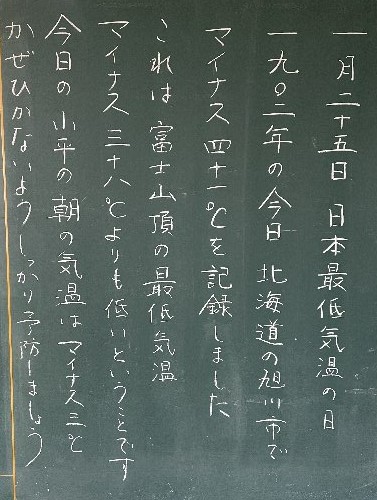 一月二十五日 日本最低気温の日
一九〇二年の今日 北海道の旭川市で
マイナス四十一℃を記録しました
これは富士山頂の最低気温
マイナス三十八℃よりも低いということです
今日の小平の朝の気温はマイナス三℃
かぜひかないようしっかり予防しましょう